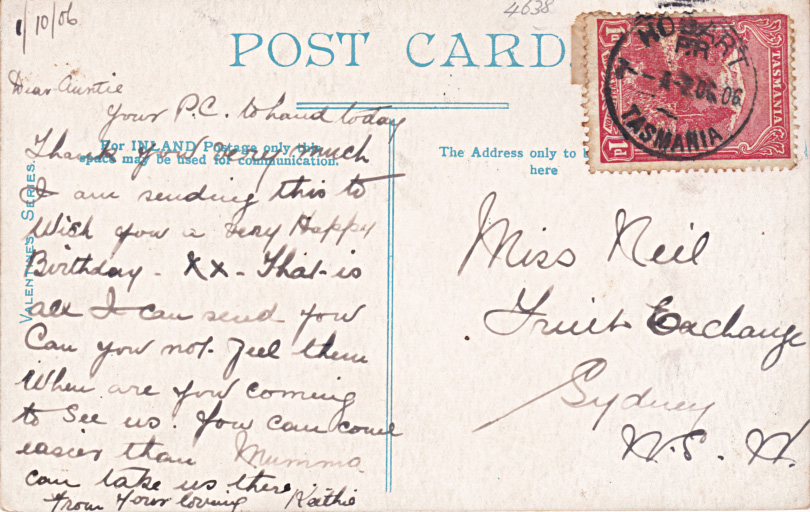 1/10/06
4638
POST CARD
1d
TASMANIA
1d
HOBART
06
TASMANIA
Dear Auntie
Your P.C. to hand today
Thank you very much
I am sending this to
Wish you a Very Happy
Birthday - XX - That is
all I can send you
Can you not feel them
When are you coming
to See us. You can come
easier than Mumma
can take us there
from Your loving Kathie
For INLAND Postage only this
space may be used for communication.
VALENTINE'S SERIES.
The Address only to b
here
Miss Neil
Fruit Exchange
Sydney
N.S.W.